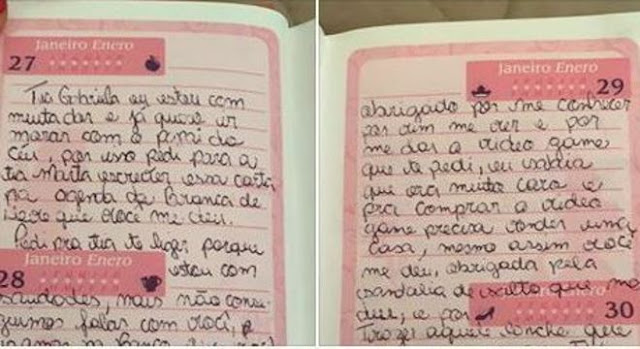 Janeiro Enero
27
Tia Gabriela eu estou com
muita dor e já quase ir
morar com o papai do
céu, por isso pedi para a
tia Marta escrever essa carta
na agenda da Branca de
Neve que você me deu.
Pedi pra tia te ligar porque
Janeiro Enero
28
estou com
saudades, mais não conse-
guimos falar com você, e
Janeiro Enero
29
obrigado por me conhecer
por vim me ver e por
me dar o video game
que te pedi, eu sabia
que era muito caro e
pra comprar o video
game precisa vender uma
casa, mesmo assim você
me deu, obrigada pela
sandalia de salto que me
deu, e por
30
Trazer aquele lanche dele